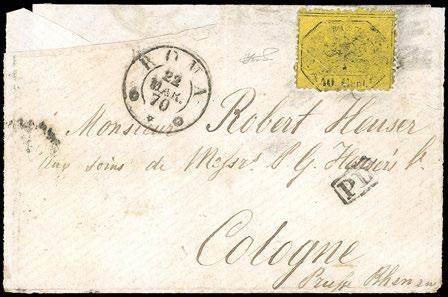 40 Cent
ROMA
22
MAR.
70
Monsieur Robert Heuser
aux soins de Messrs P. G. Heusers
PD
Cologne
Prusse Rhenane